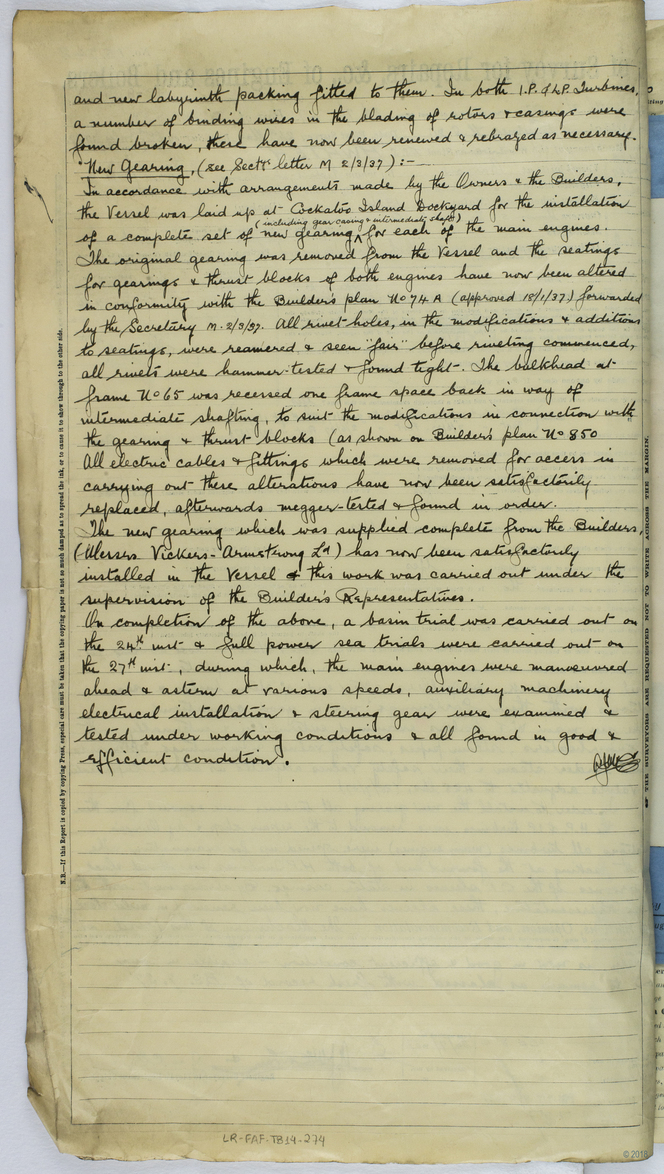 and new labyrinth packing fitted to them. In both I.P. & L.P. Turbines,
a number of binding wires in the blading of rotors & casings were
found broken, these have now been renewed & rebrazed as necessary.
New Gearing, (see Sect's letter M 2/3/37) :-
In accordance with arrangements made by the Owners & the Builders,
the Vessel was laid up at Cockatoo Island Dockyard for the installation
(including gear casing & intermediate shafts)
of a complete set of new gearing ^ for each of the main engines.
The original gearing was removed from the Vessel and the seatings
for gearings & thrust blocks of both engines have now been altered
in conformity with the Builder's plan No 74 A (approved 18/1/37) forwarded
by the Secretary M. 2/3/37. All rivet-holes, in the modifications & additions
to seatings, were reamered & seen "fair" before riveting commenced,
all rivets were hammer-tested & found tight. The bulkhead at
frame No 65 was recessed one frame space back in way of
intermediate shafting, to suit the modifications in connection with
the gearing & thrust blocks (as shown on Builder's plan No 850
All electric cables & fittings which were removed for access in
carrying out these alterations have now been satisfactorily
replaced, afterwards megger-tested & found in order.
The new gearing which was supplied complete from the Builders,
(Messrs. Vickers-Armstrong Ld) has now been satisfactorily
installed in the Vessel & this work was carried out under the
supervision of the Builder's Representatives.
On completion of the above, a basin trial was carried out on
the 24th inst & full power sea trials were carried out on
the 27th inst, during which, the main engines were manoeuvred
ahead & astern at various speeds, auxiliary machinery
electrical installation & steering gear were examined &
tested under working conditions & all found in good &
efficient condition.
N.B.—If this Report is copied by copying Press, especial care must be taken that the copying paper is not so much damped as to spread the ink, or to cause it to show through to the other side.
THE SURVEYORS ARE REQUESTED NOT TO WRITE ACROSS THE MARGIN.
LR-FAF-TB14-274
© 2018